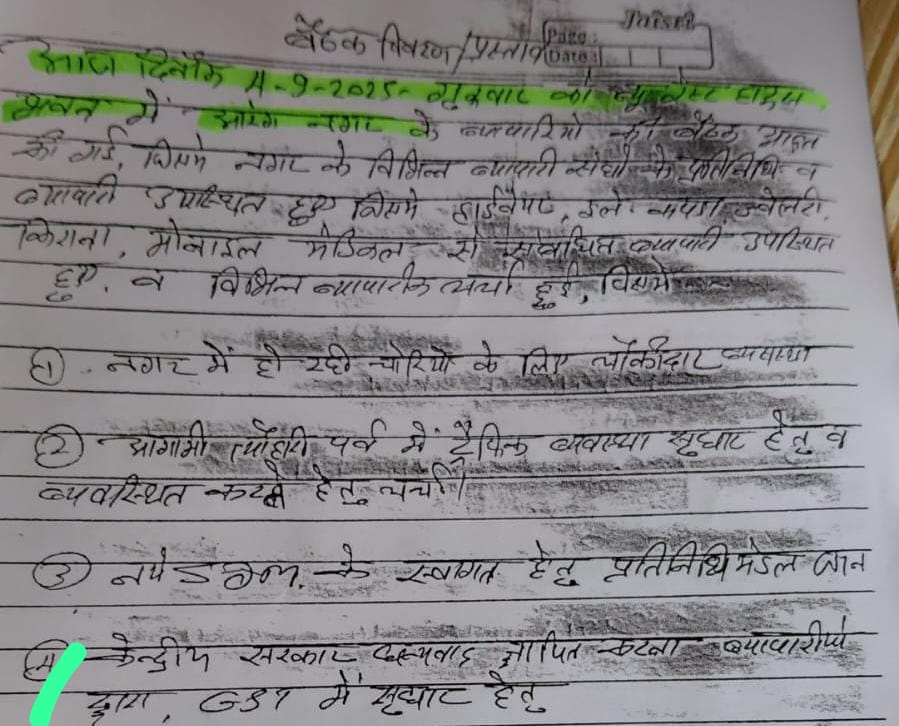 Page:
Date:
बैठक विवरण/प्रस्ताव
आज दिनाँक 4-9-2025- गुरुवार को न्यू रेस्ट हाउस
भवन में आरंग नगर के व्यापारियों की बैठक आहुत
की गई, जिसमे नगर के विभिन्न व्यापारी संघो के प्रतिनिधि व
व्यापारी उपस्थित हुए जिसमे हार्डवेयर, इले. कपडा ज्वेलरी,
किराना, मोबाइल मेडिकल से संबंधित व्यापारी उपस्थित
हुए. व विभिन्न व्यापारीक चर्चा हुई, जिसमे
① . नगर में हो रही चोरियो के लिए चौकीदार व्यवस्था
② आगामी त्योहारी पर्व में ट्रैफिक व्यवस्था सुधार हेतु व
व्यवस्थित करने हेतु चर्चा।
③ नये के स्वागत हेतु प्रतिनिधि मंडल जान
④ केन्द्रीय सरकार धन्यवाद ज्ञापित करना व्यापारीयो
द्वारा, GST में सुधार हेतु